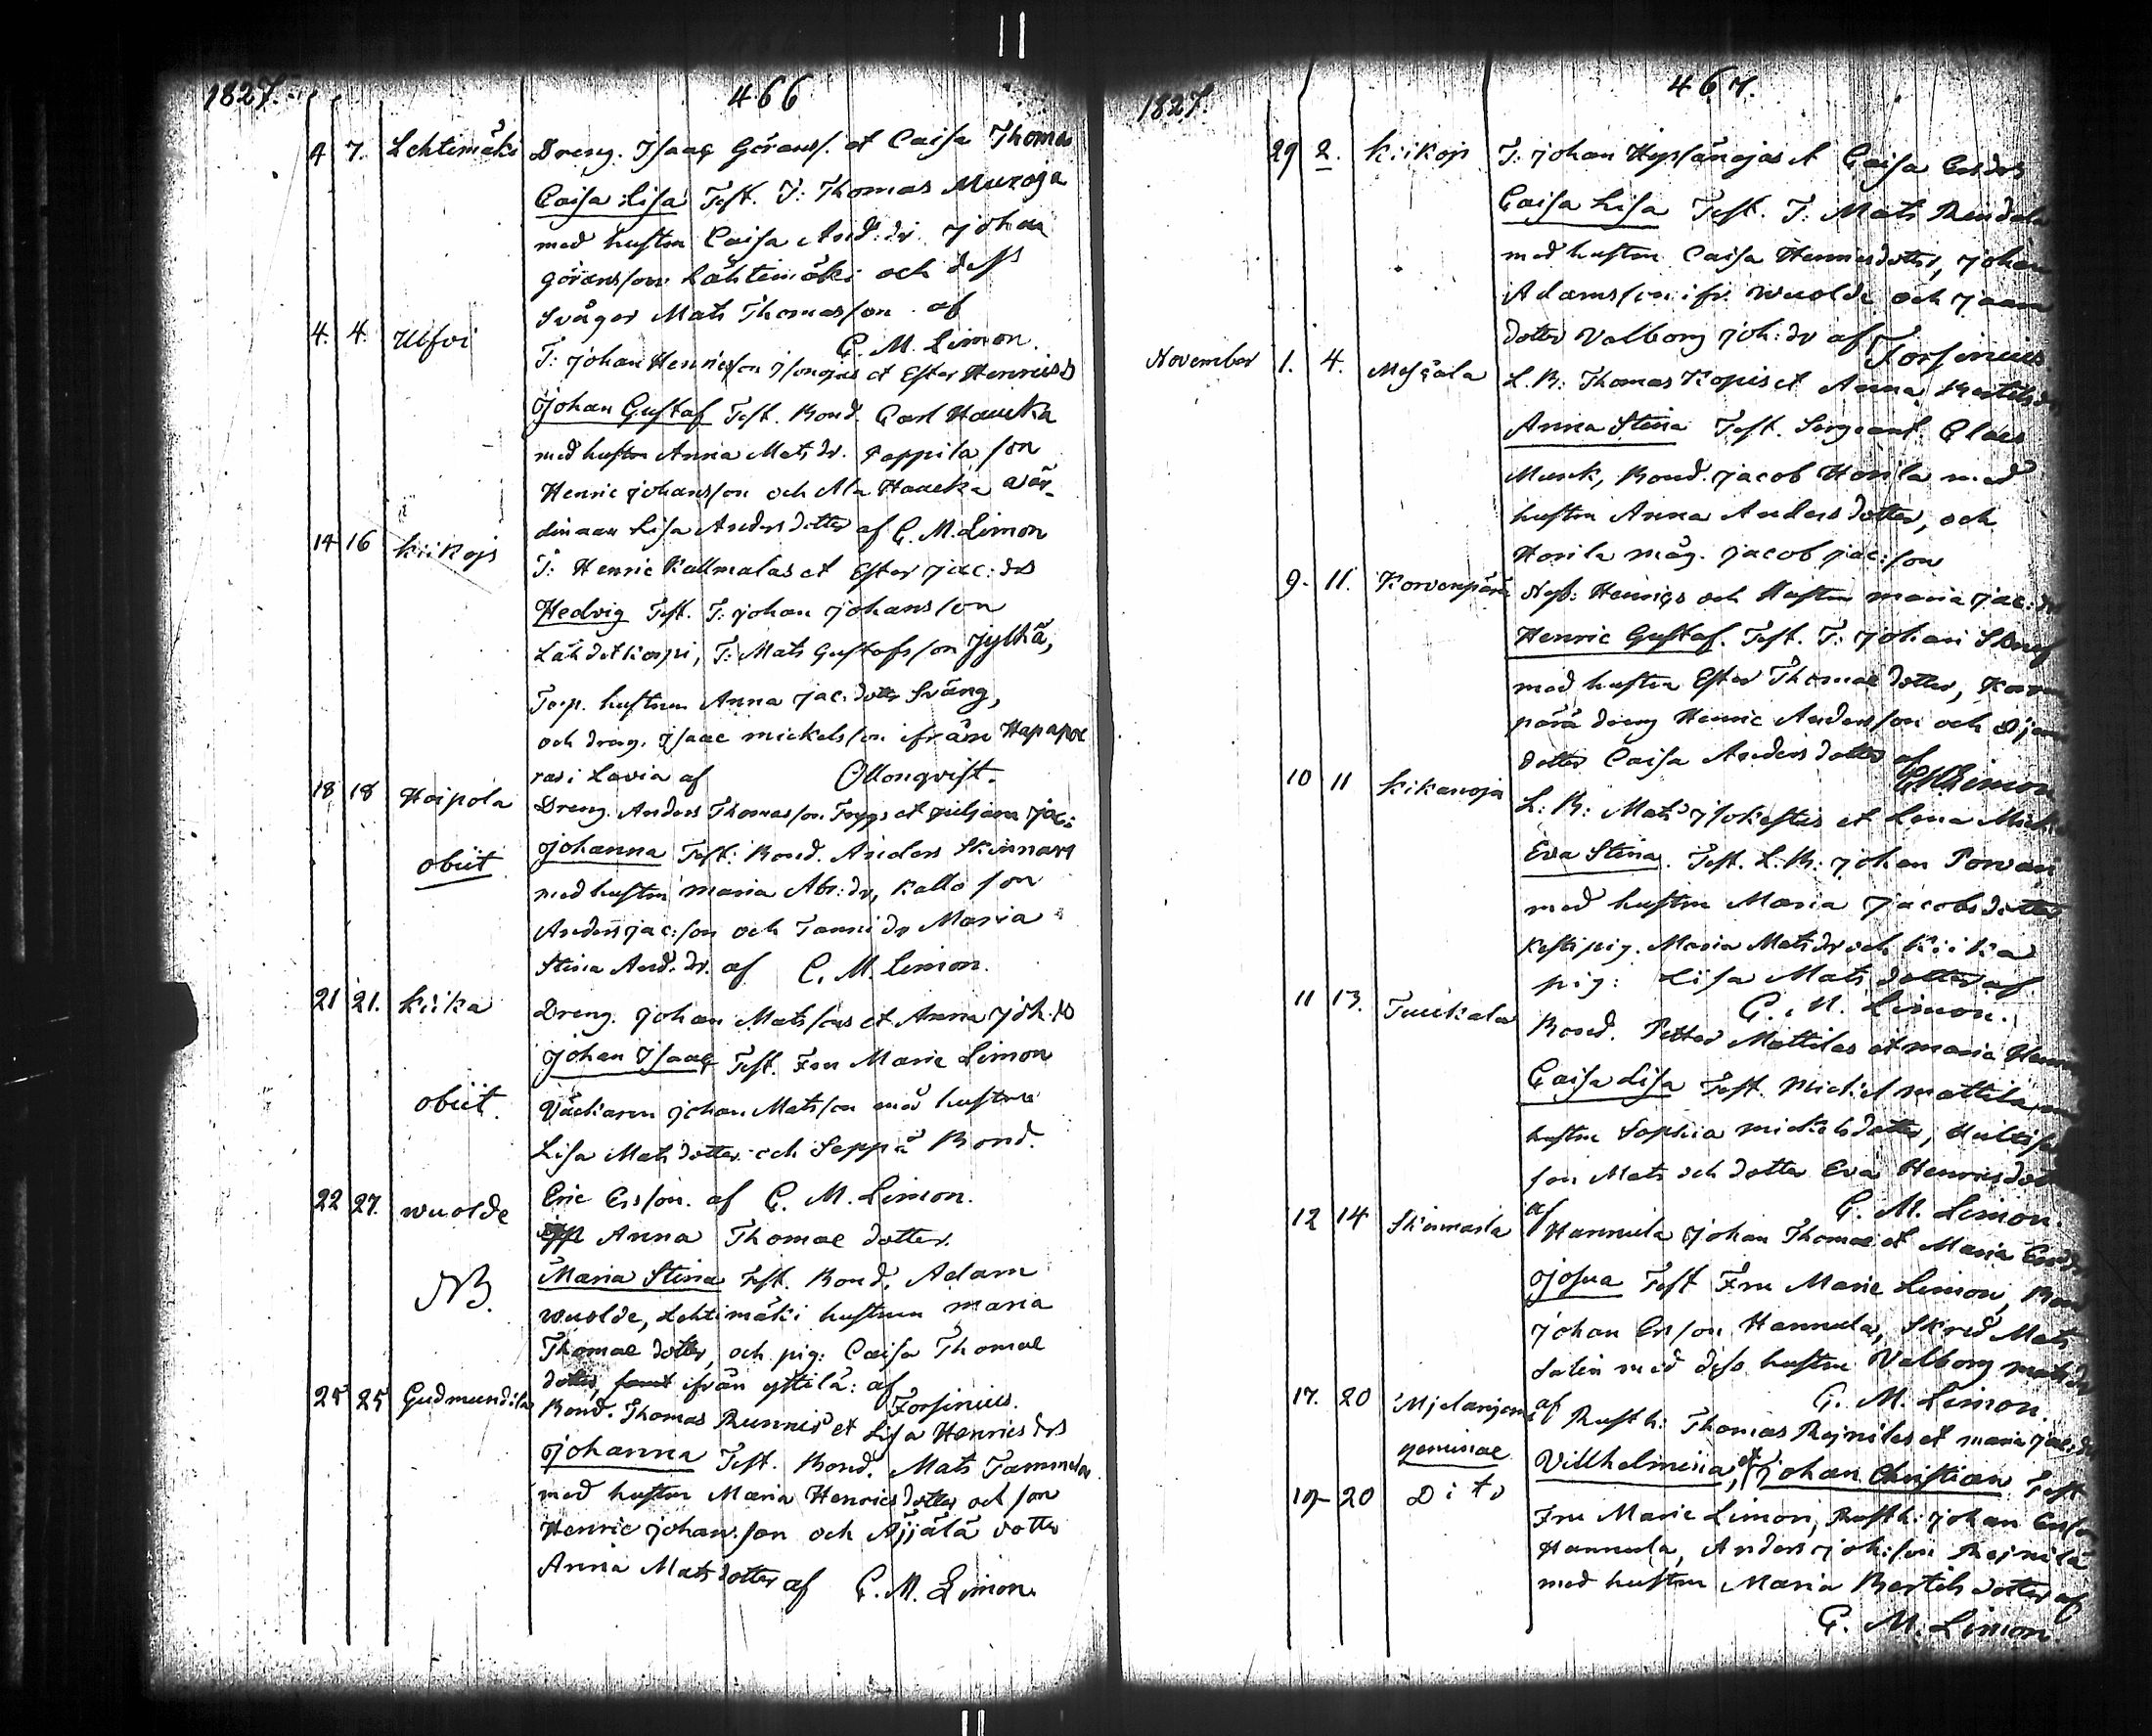 1827. 466
4 7. Lehtimäki Dreng. Isaac Görans. et Caisa Thomæ
Caisa Lisa Test. T: Thomas Muroja
med hustru Caisa And: dr. Johan
Göransson Lähtimäki och dess
Svåger Mats Thomasson af
C. M. Limon.
4. 4. Ulfvi T: Johan Henricsson et Ester Henricsd
Johan Gustaf Test. Bond. Carl Haucka
med hustru Anna Mats dr. Pappila son
Henric Johansson och Ala Haucka vär-
dinnan Lisa Anders dotter af C. M. Limon
14 16 Kiikojs T: Henric Kallmalas et Ester Jac: drs
Hedvig Test. T: Johan Johansson
Lähdetkorpi, T: Mats Gustafsson Jylhä,
Torp. hustrun Anna Jac: dotter Sväng,
och dreng. Isaac Mickelsson ifrån Hapape
ras i Lavia af Monqvist.
18 18 Haipola Dreng. Anders Thomasson et Juliana Jac:
obiit Johanna Test: Bond. Anders Skinnari
med hustru Maria Abr: dr, Kallo son
Anders Jac: son och Tomi dr Maria
Stina And. dr. af C. M. Limon.
21 21. Kiika Dreng. Johan Matssons et Anna Joh. ds
Johan Isaac Test. Fru Marie Limon
obiit. Väckaren Johan Matsson med hustru
Lisa Mats dotter och Seppä Bond.
Eric Ersson. af C. M. Limon.
22 27. Wuolde Anna Thomae dotter.
NB. Maria Stina Test. Bond. Adam
Wuolde, Lehtimäki hustrun Maria
Thomae dotter, och pig: Caisa Thomae
dotter, ifrån Yttilä: af
Forsinius.
25 25 Gudmundila Bond. Thomas Runnis et Lisa Henrics drs
Johanna Test. Bond. Mats Tammela
med hustru Maria Henrics dotter och son
Henric Johans son och Äijälä dotter
Anna Mats dotter af C. M. Limon
1827. 467.
29 2. Kiikojs T: Johan Hepsänojas et Caisa Ers drs
Caisa Lisa Test. T: Mats
med hustru Caisa Henricsdotter, Johan
Adamsson ifr. Wuolde och
dotter Valborg Joh: dr af Forsinius
November 1. 4. Meskala L. B: Thomas Kopis et Anna Bertils
Anna Stina Test. Sergeant Claes
Munck, Bond. Jacob Horila med
hustru Anna Anders dotter, och
Horila måg. Jacob Jac: son
9. 11. Korvenpärä Nyb: Henrics och Hustru Maria Jac: dr
Henric Gustaf. Test. T: Johan
med hustru Ester Thomae dotter, Korven
pärä dreng Henric Andersson och
dotter Caisa Anders dotter af
C. M. Limon
10 11 Kikanoja L: B: Mats Isokestis et Lena Mick
Eva Stina. Test. L. B: Johan Porvari
med hustru Maria Jacobs dotter
Kesti pig. Maria Mats dr och Kiika
pig: Lisa Mats dotter af
C. M. Limon.
11 13. Tuckala Bond. Petter Mattilas et Maria Henr
Caisa Lisa Test. Mickel Mattila
hustru Sophia Mickelsdotter,
son Mats och dotter Eva Henricsdott
af C. M. Limon.
12 14 Skinnarla Hannula Johan Thomae et Maria
Josua Test Fru Marie Limon,
Johan Ersson Hannula, Skred. Mats
Salin med dess hustru Valborg Mats dr
af C. M. Limon.
17. 20 Rusth: Thomas Rejnilas et Maria Jac: dr
geminae Villhelmina, et Johan Christian Test
19 20 Dito Fru Marie Limon, Rusth: Johan Ersson
Hannula, Anders Joh: son Rejnilä
med hustru Maria Bertils dotter af
C. M. Limon.